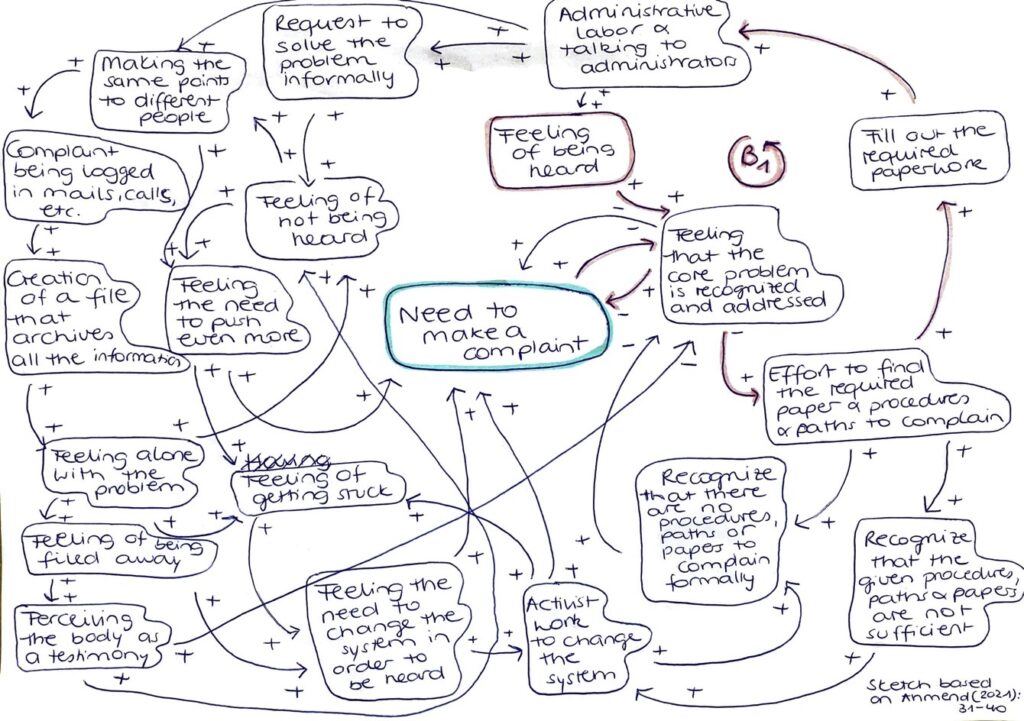 Administrative
labor &
talking to
administrators
Request to
solve the
problem
informally
Making the
same points
to different
people
Complaint
being logged
in mails, calls,
etc.
Feeling
of being
heard
B1
Fill out the
required
paperwork
Feeling of
not being
heard
Feeling
that the
core problem
is recognized
and addressed
Creation
of a file
that
archives
all the information
Feeling
the need
to push
even more
Need to
make a
complaint
Effort to find
the required
paper & procedures
& paths to complain
Feeling alone
with the
problem
Having
Feeling of
getting stuck
Recognize
that there
are no
procedures,
paths or
papers to
complain
formally
Feeling of being
filed away
Recognize
that the
given procedures,
paths & papers,
are not
sufficient
Perceiving
the body as
a testimony
Feeling the
need to
change the
system in
order to
be heard
Activist
work
to change
the
system
Sketch based
on Ahmend (2021):
31-40